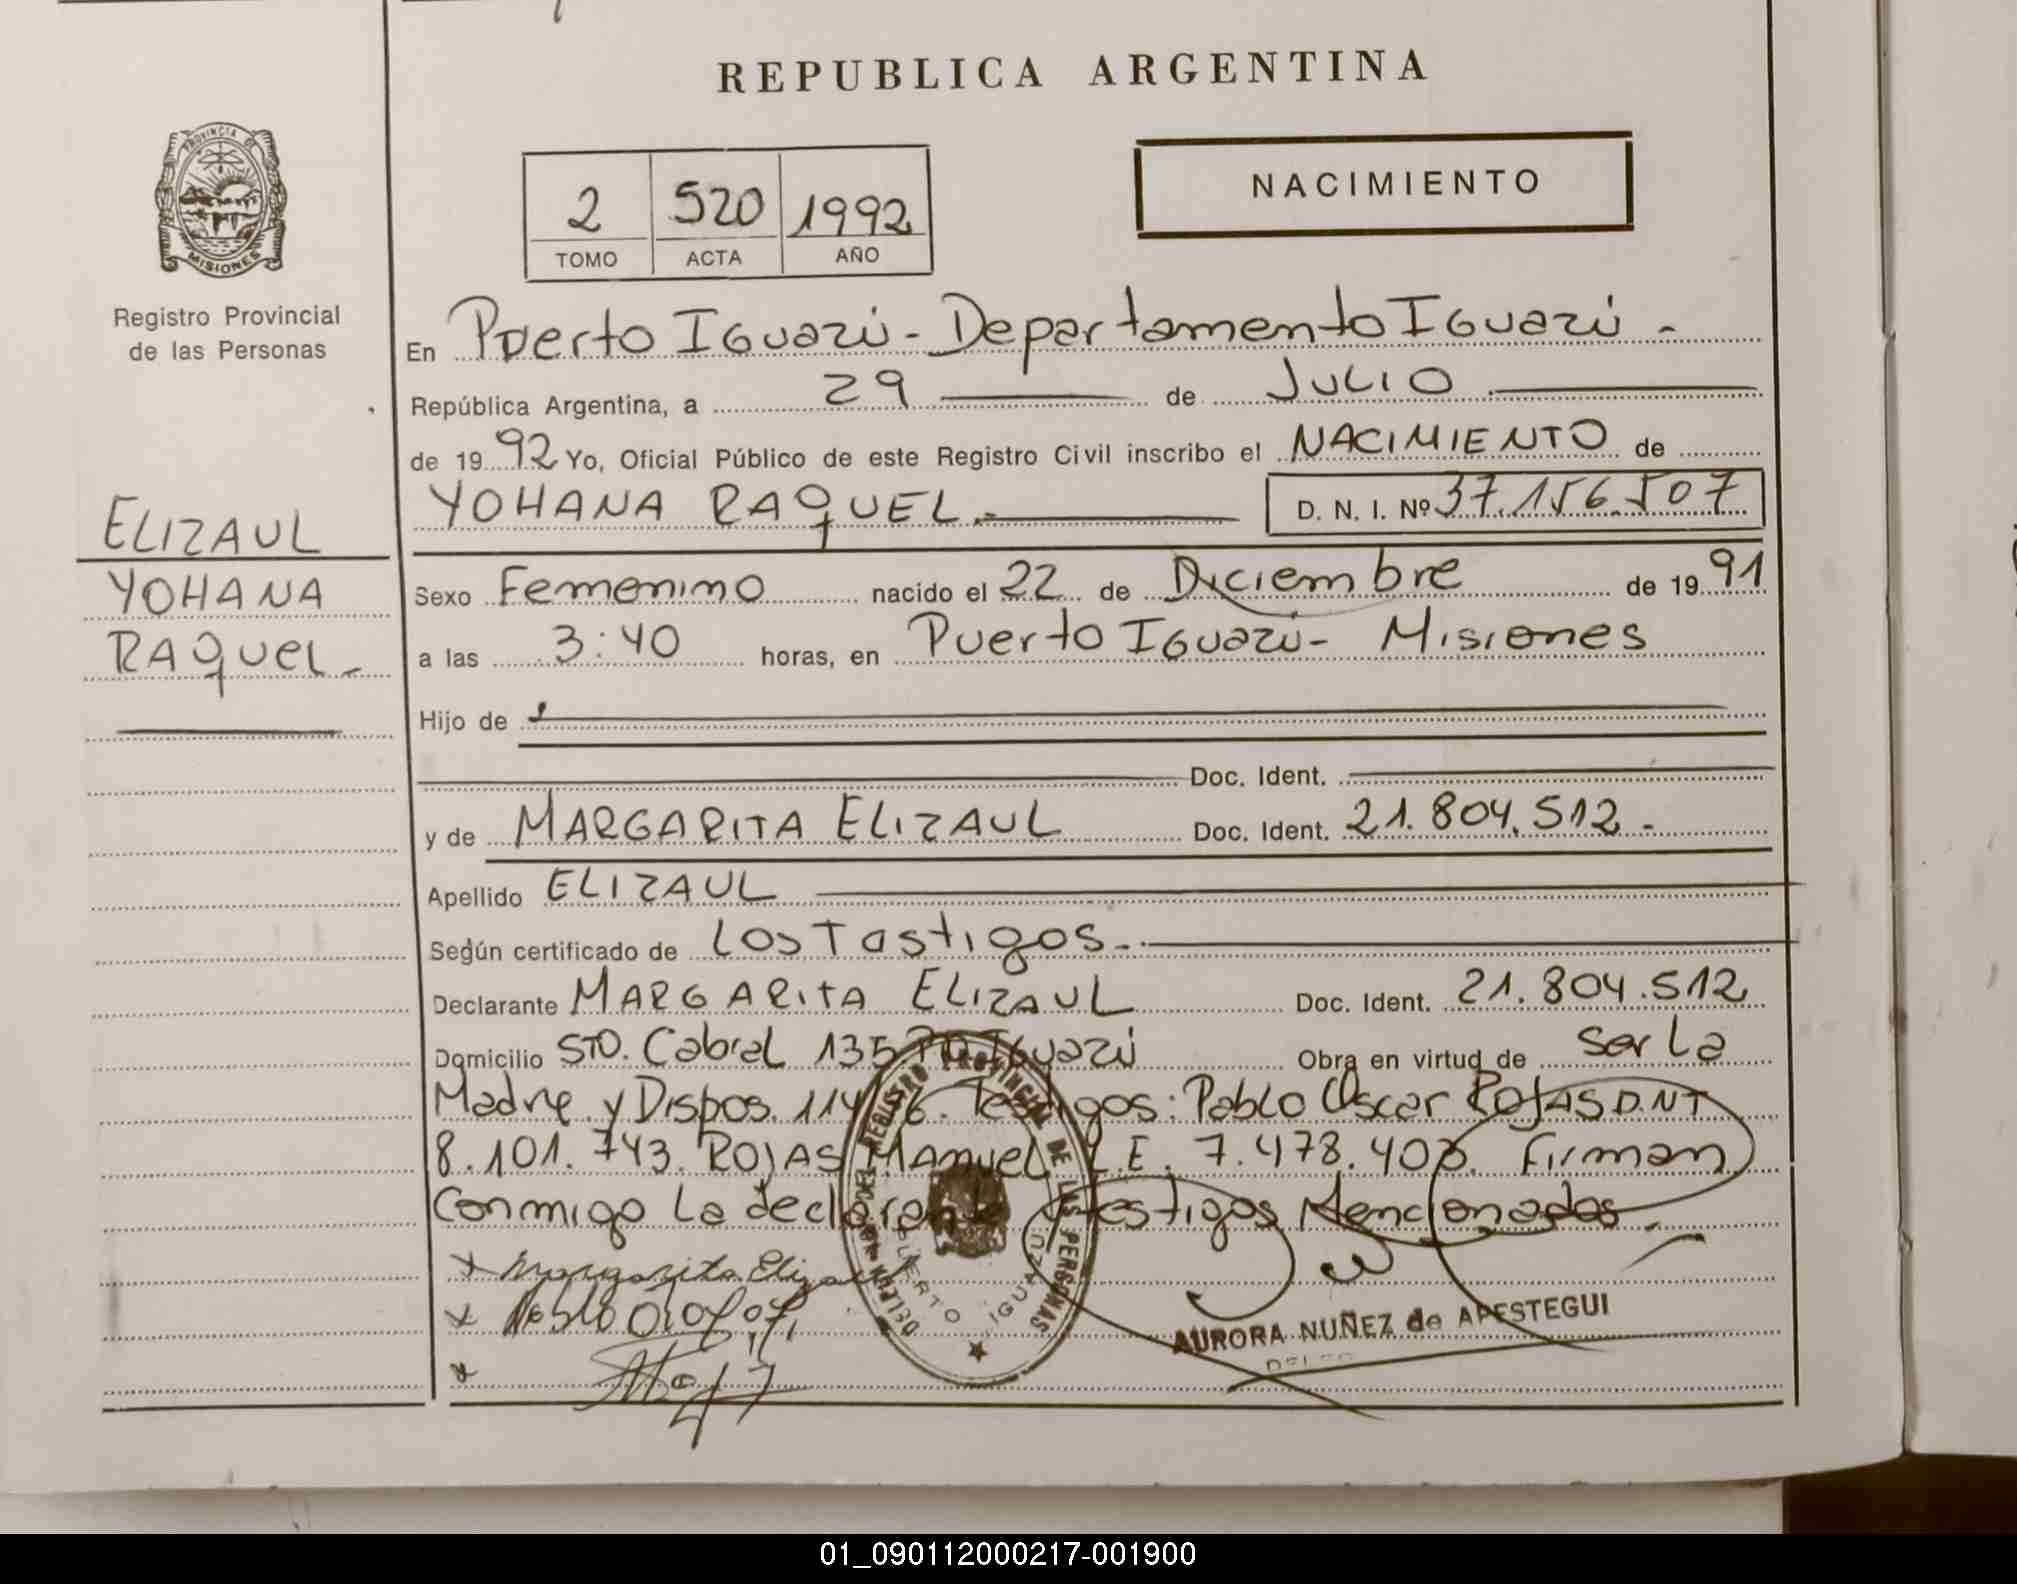 REPUBLICA ARGENTINA
PROVINCIA DE
MISIONES
Registro Provincial
de las Personas
NACIMIENTO
2 520 1992
TOMO ACTA AÑO
En Puerto Iguazú - Departamento Iguazú -
República Argentina, a 29 de JULIO
de 1992 Yo, Oficial Público de este Registro Civil inscribo el NACIMIENTO de
YOHANA RAQUEL.- D. N. I. Nº 37.156.507
ELIZAUL
YOHANA
RAQUEL.-
Sexo Femenino nacido el 22 de Diciembre de 1991
a las 3:40 horas, en Puerto Iguazú - Misiones
Hijo de
Doc. Ident.
y de MARGARITA ELIZAUL Doc. Ident. 21.804.512.-
Apellido ELIZAUL
Según certificado de Los Tastigos.-
Declarante MARGARITA ELIZAUL Doc. Ident. 21.804.512
Domicilio STO. Cabral 135 Iguazú Obra en virtud de ser La
Madre y Dispos. Testigos: Pablo Oscar ROJAS D.N.I
8.101.743. ROJAS Manuel L.E. 7.478.403. Firman
Conmigo La declarante y testigos Mencionados.-
x Margarita Elizaul
x Pablo
x
REGISTRO PROVINCIAL DE LAS PERSONAS
PUERTO IGUAZU
AURORA NUÑEZ de APESTEGUI
01_090112000217-001900